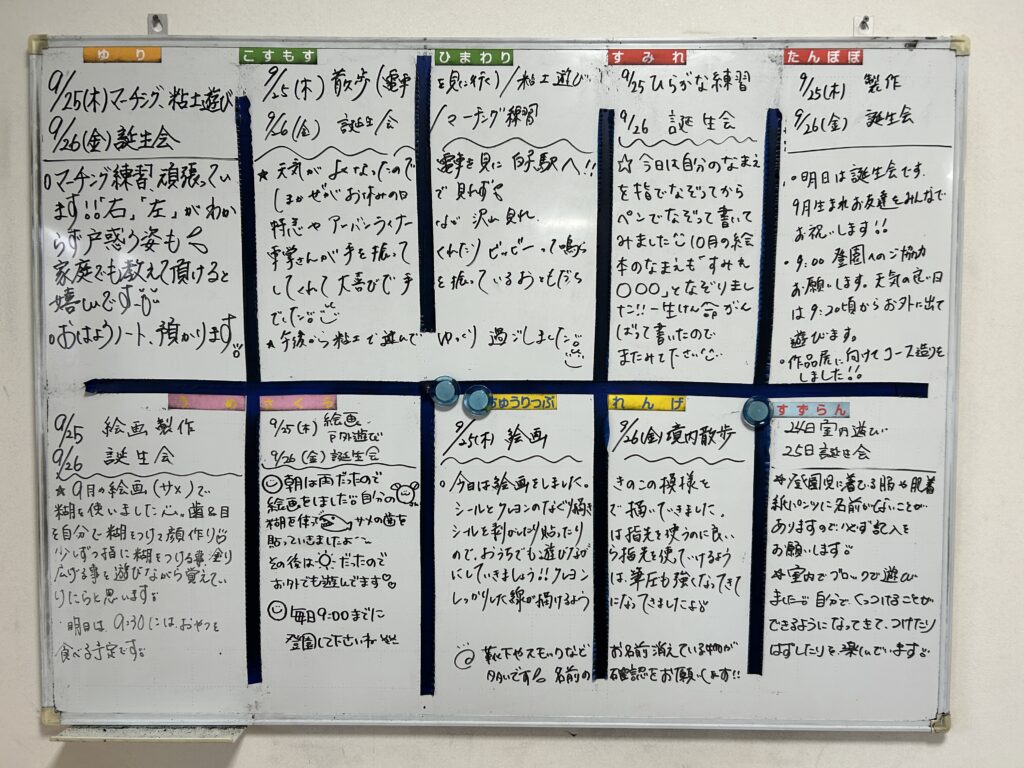 ゆり
9/25(木)マーチング、粘土遊び
9/26(金)誕生会
○マーチング練習頑張ってい
ます!!「右」「左」がわか
らず戸惑う姿も
家庭でも教えて頂けると
嬉しいです
○おはようノート、預かります。
こすもす
ひまわり
9/25(木) 散歩(電車を見に行く)/粘土遊び
9/26(金) 誕生会/マーチング練習
★ 天気がよくなったので電車を見に 白子駅へ!!
しまかぜがお休みの日で見れず
特急やアーバンライナーが沢山見れ、
車掌さんが手を振ってくれたり ピッピーって鳴ら
してくれて大喜びで手を振っているおともだち
でした。
★午後から粘土で遊んで ゆっくり 過ごしました。
すみれ
9/25 ひらがな練習
9/26 誕生会
☆今日は自分のなまえ
を指でなぞってから
ペンでなぞって書いて
みました 10月の絵
本のなまえも"すみれ
○○○"となぞりまし
た!!一生けん命がん
ばって書いたので
またみて下さい
たんぽぽ
9/25(木) 製作
9/26(金) 誕生会
・明日は誕生会です。
9月生まれお友達をみんなで
お祝いします!!
・9:00 登園へのご協力
お願いします。天気の良い日
は9:20頃からお外に出て
遊びます。
・作品展に向けてコース造りを
しました!!
うめ
9/25 絵画製作
9/26 誕生会
★9月の絵画(サメ)で
糊を使いました。歯&目
を自分で糊をつけて顔作り
少しずつ指に糊をつける事、塗り
広げる事を遊びながら覚えてい
けたらと思います。
明日は、9:30には、おやつを
食べる予定です。
さくら
9/25(木) 絵画
戸外遊び
9/26(金) 誕生会
朝は雨だったので
絵画をはした。自分の
糊を使って サメの歯を
貼っていきましたよ〜
その後は だったので
お外でも遊んでます
毎日9:00までに
登園して下さいね
ちゅうりっぷ
れんげ
9/25(木) 絵画
9/26(金)境内散歩
○今日は絵画をしました。きのこの模様と
シールとクレヨンのなぐり描きで描いていきました。
シールを剥がしたり貼ったりは指先を使うのに良い
ので、おうちでも遊びながら指先を使っていけるよう
にしていきましょう!!クレヨンは、筆圧も強くなってきて
しっかりした線が描けるようになってきましたよ
靴下やスモックなどお名前消えている物が
多いです 名前の確認をお願いします!!
すずらん
24日室内遊び
25日誕生会
*登園児に着てる服や肌着
紙パンツに名前がないことが
ありますので必ず記入を
お願いします
*室内でブロックで遊び
ました。自分でくっつけることが
できるようになってきて、つけたり
はずしたりを楽しんでいます